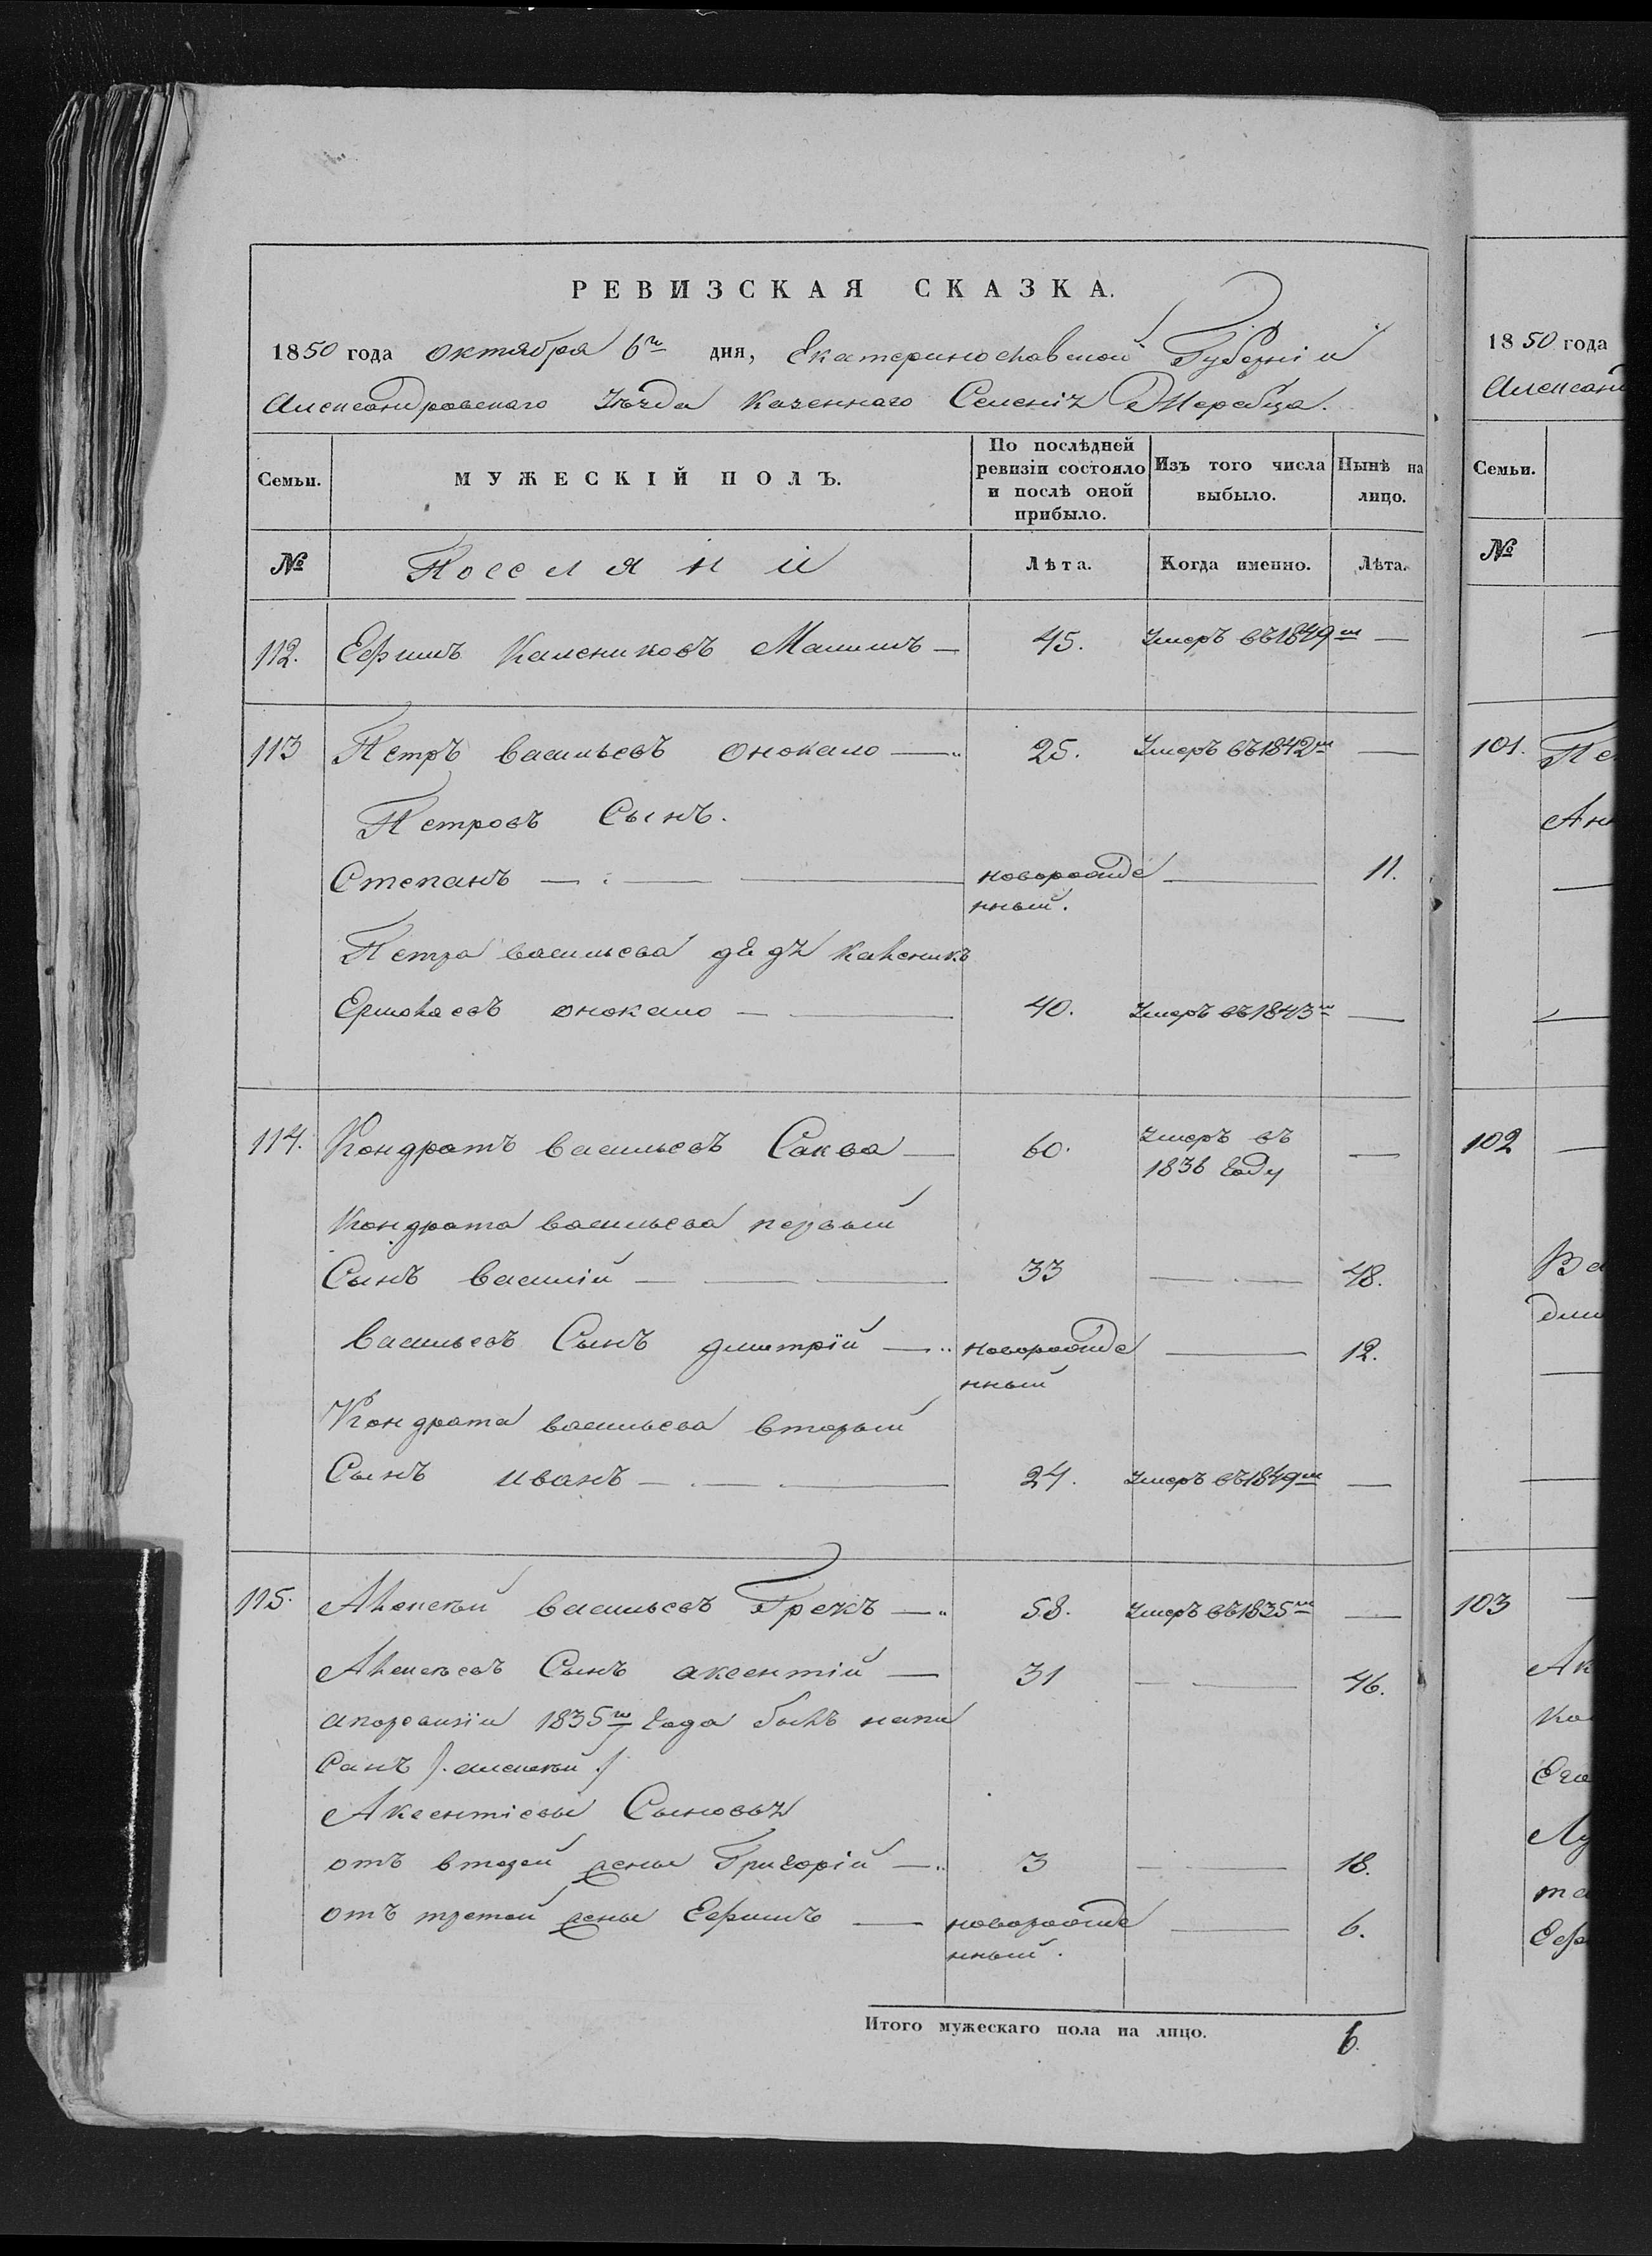 РЕВИЗСКАЯ СКАЗКА.
1850 года октября 6го дня, Екатеринославской Губерніи
Александровскаго Уѣзда Казеннаго Селенія Жеребца.
Семьи.
МУЖЕСКІЙ ПОЛЪ.
По послѣдней ревизіи состояло и послѣ оной прибыло.
Изъ того числа выбыло.
Нынѣ на лицо.
№
Лѣта.
Когда именно.
Лѣта.
112. Ефимъ 45. Умеръ въ 1849м —
113 Петръ васильевъ онокало — 25. Умеръ въ 1842м —
Петровъ Сынъ.
Степанъ — новорожде нный. — 11.
Петра васильева дядя
Ермолаевъ онокало — 40. Умеръ въ 1843м —
114. Кондратъ васильевъ Саква — 60. Умеръ въ 1836 году —
Кондрата васильева первый
Сынъ василій — 33 — 48.
васильевъ Сынъ дмитрій — новорожде нный — 12.
Кондрата васильева вторый
Сынъ иванъ — 24. Умеръ въ 1849м —
115. Алексѣй васильевъ Грекъ — 58. Умеръ въ 1835м —
Алексѣевъ Сынъ аксентій — 31 — 46.
апоревизіи 1835го года былъ напи
Санъ /. алексѣй ./
Аксентіевы Сыновья
отъ вторей жены Григорій — 3 — 18.
отъ третей жены Ефимъ — новорожде нный. — 6.
Итого мужескаго пола на лицо. 6.
1850 года
Александ
Семьи.
№
101. Пе
102
Ва
103
Ак
Ефи